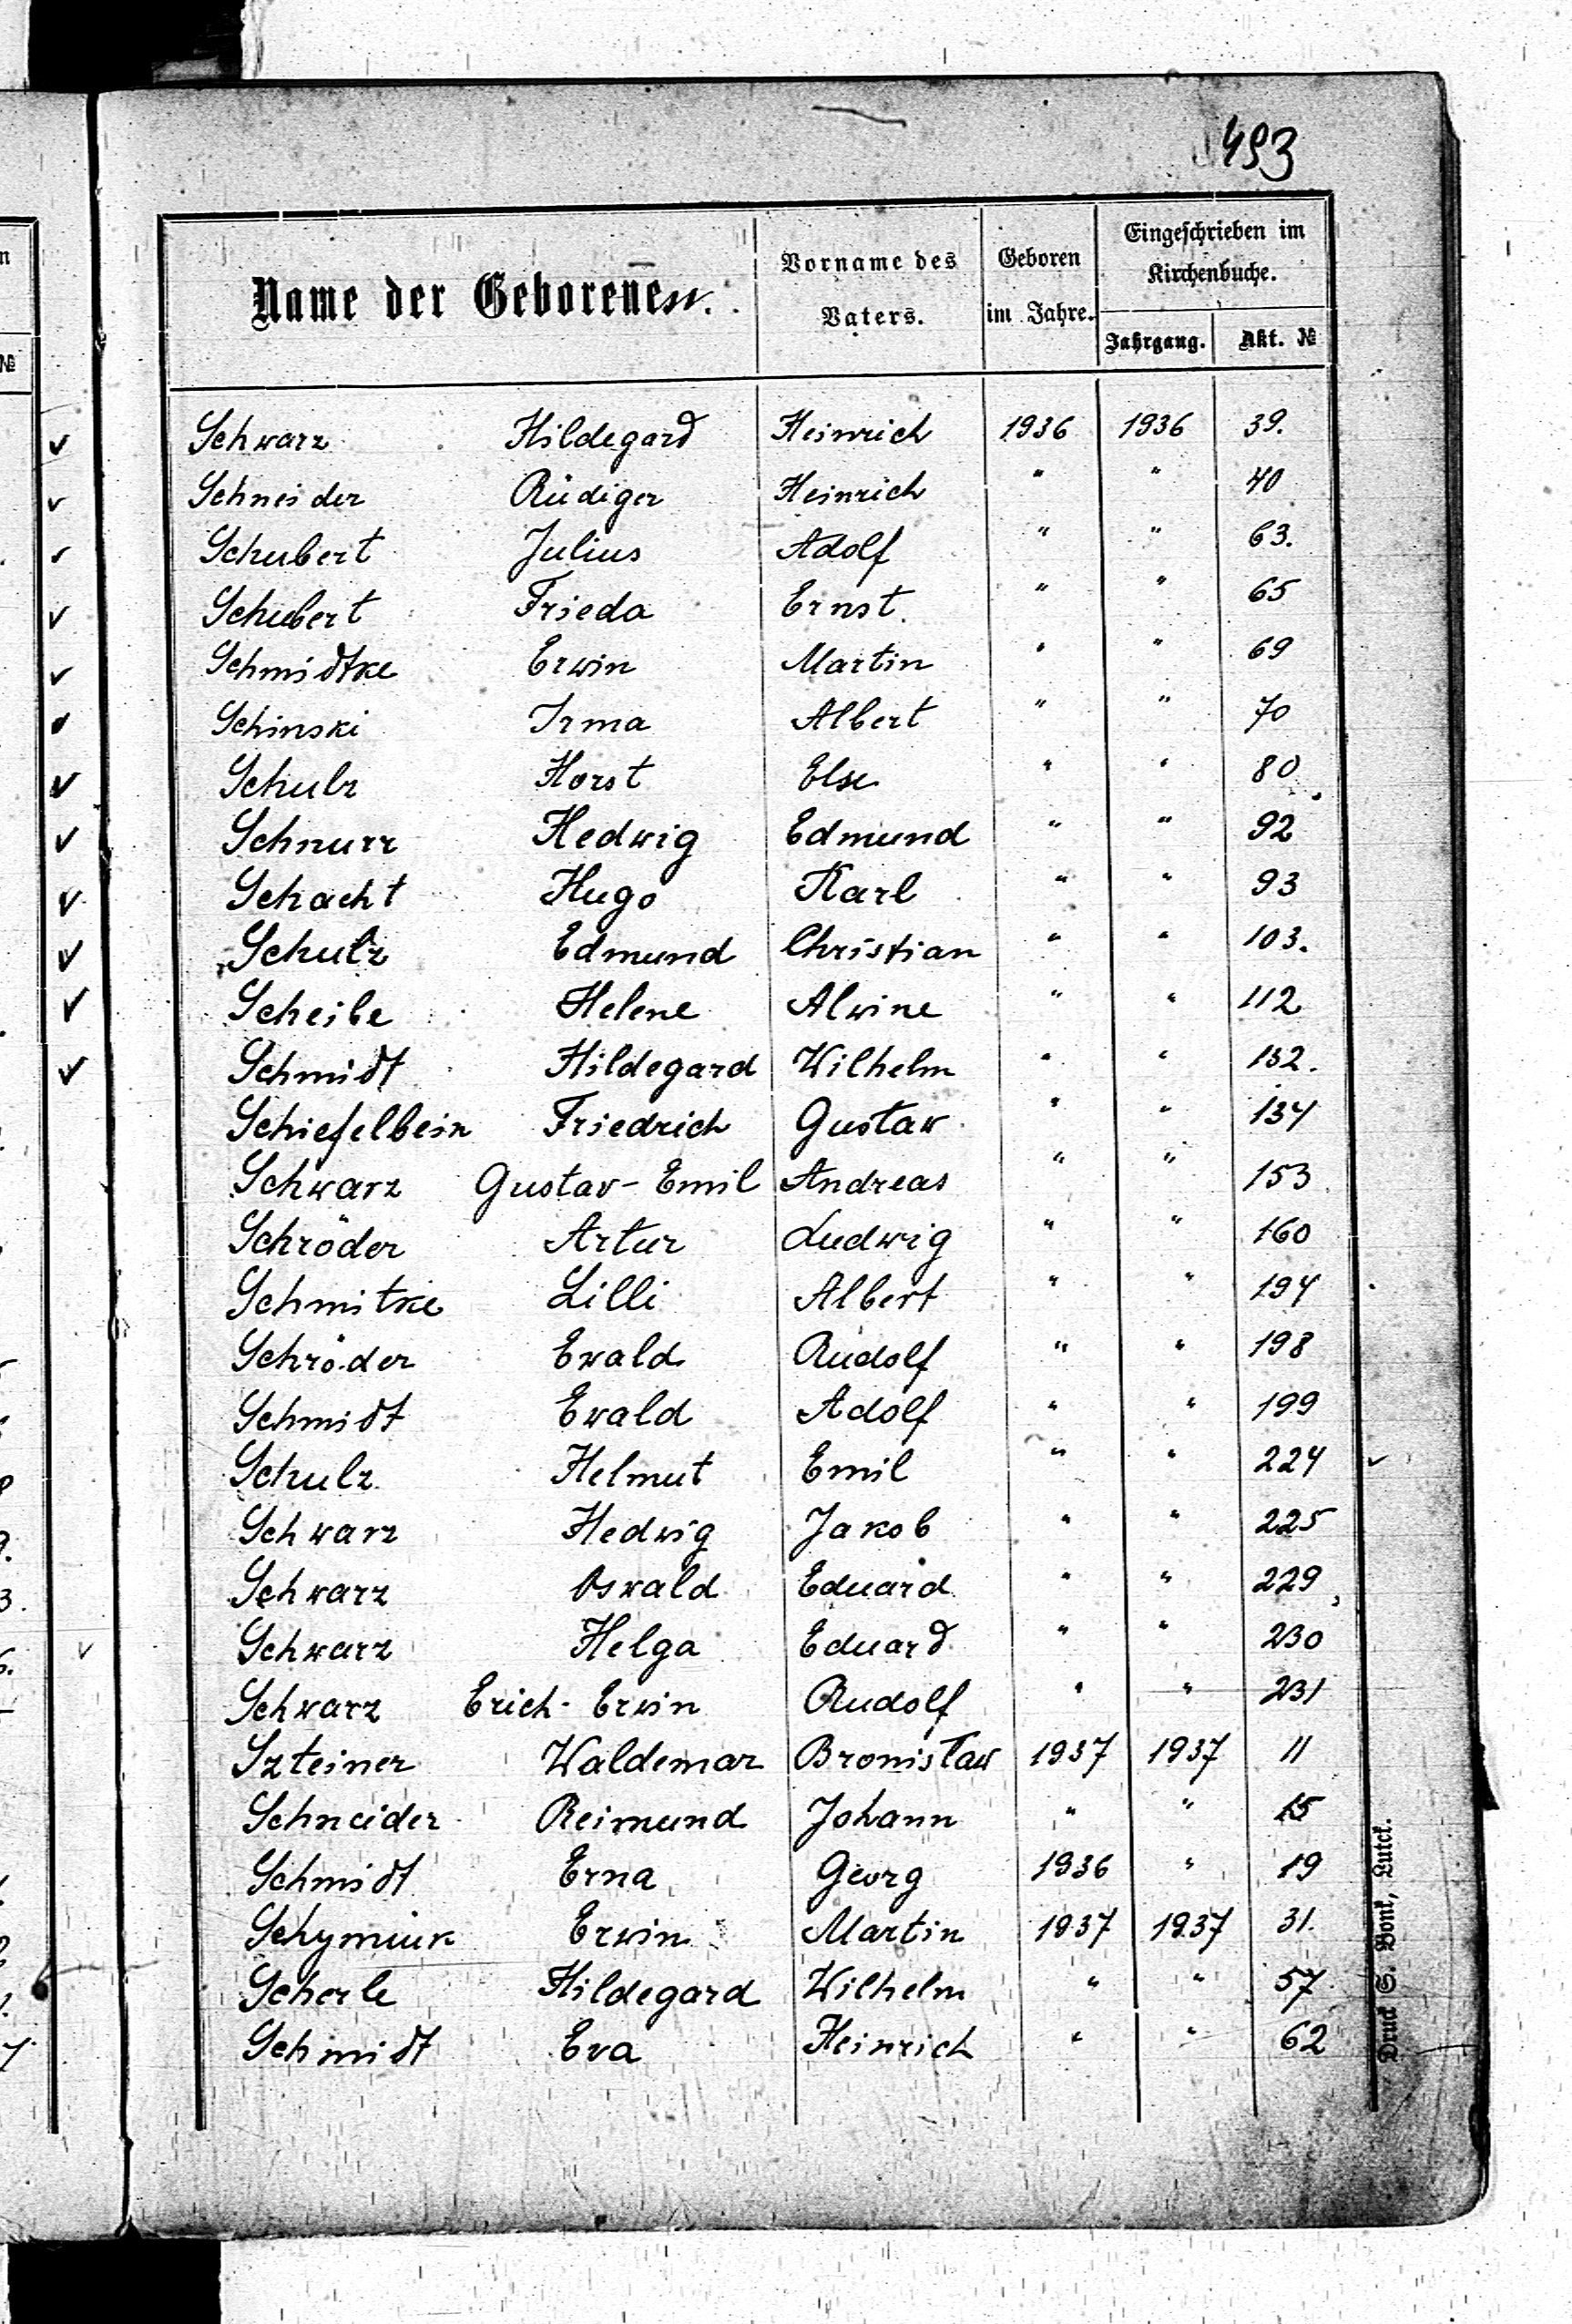 493
Name der Geborenen.
Vorname des Vaters.
Geboren im Jahre.
Eingeschrieben im Kirchenbuche.
Jahrgang. Akt. №
Schwarz Hildegard Heinrich 1936 1936 39.
Schneider Rüdiger Heinrich " " 40
Schubert Julius Adolf " " 63.
Schubert Frieda Ernst. " " 65
Schmidtke Erwin Martin " " 69
Schinski Irma Albert " " 70
Schulz Horst Else " " 80
Schnurr Hedwig Edmund " " 92
Schacht Hugo Karl " " 93
Schulz Edmund Christian " " 103.
Scheibe Helene Alwine " " 112
Schmidt Hildegard Wilhelm " " 132.
Schiefelbein Friedrich Gustav " " 134
Schwarz Gustav-Emil Andreas " " 153
Schröder Artur Ludwig " " 160
Schmitke Lilli Albert " " 194
Schröder Ewald Rudolf " " 198
Schmidt Ewald Adolf " " 199
Schulz Helmut Emil " " 224
Schwarz Hedwig Jakob " " 225
Schwarz Oswald Eduard " " 229
Schwarz Helga Eduard " " 230
Schwarz Erich-Erwin Rudolf " " 231
Szteiner Waldemar Bronisław 1937 1937 11
Schneider Reimund Johann " " 15
Schmidt Erna Georg 1936 " 19
Schymiuk Erwin Martin 1937 1937 31.
Scherle Hildegard Wilhelm " " 57
Schmidt Eva Heinrich " " 62
Druck S. Bonk, Lutck.